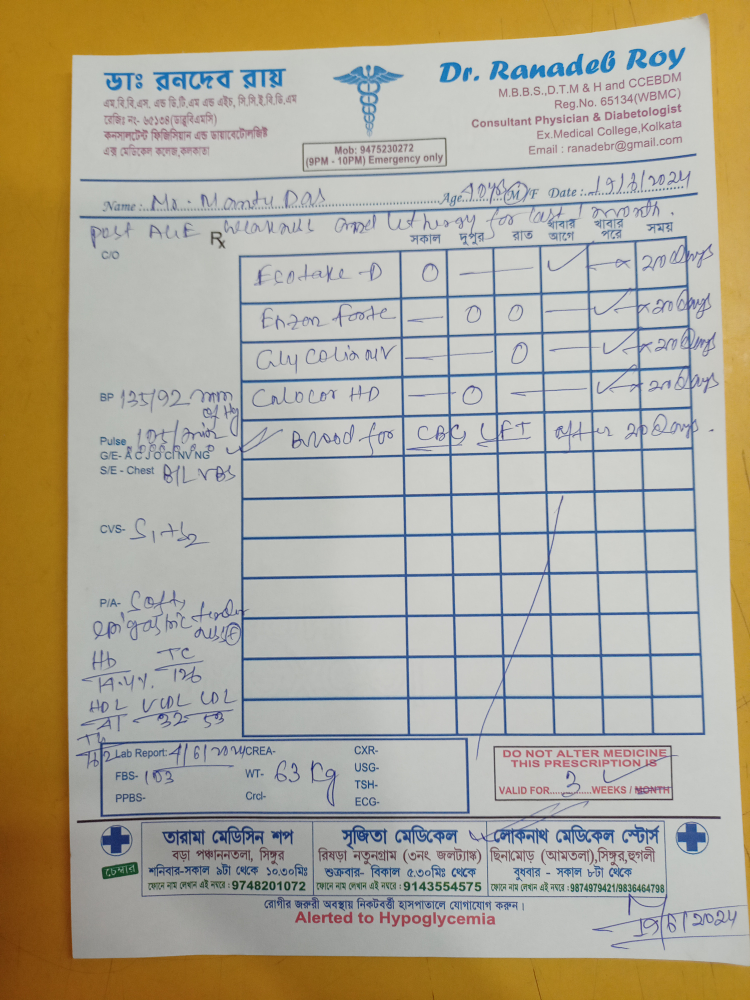 ডাঃ রনদেব রায়
এম.বি.বি.এস, এন্ড ডি.টি.এম এন্ড এইচ, সি.সি.ই.বি.ডি.এম
রেজিঃ নং- ৬৫১৩৪(ডাব্লুবিএমসি)
কনসালটেন্ট ফিজিসিয়ান এন্ড ডায়াবেটোলজিষ্ট
এক্স মেডিকেল কলেজ,কলকাতা
Mob: 9475230272
(9PM - 10PM) Emergency only
Dr. Ranadeb Roy
M.B.B.S.,D.T.M & H and CCEBDM
Reg.No. 65134(WBMC)
Consultant Physician & Diabetologist
Ex.Medical College,Kolkata
Email : ranadebr@gmail.com
Name : Mr. Mantu Das Age 40 yrs M/F Date : 19/6/2024
Post AGE weakness and lethergy for last 1 month.
C/O Rx সকাল দুপুর রাত খাবার আগে খাবার পরে সময়
Ecotake-D O — — ✓ — × 20 Days
Enzon forte — O O — ✓ × 20 Days
Glycolin MV — — O — ✓ × 20 Days
BP 135/92 mm of Hg
Calocor HD — O — — ✓ × 20 Days
Pulse 105/min
✓ Blood for CBC LFT after 20 Days.
G/E- A C J O C NV NG
S/E - Chest B/L VBS
CVS- S1+S2
P/A- Soft,
epigastric tender
ness (+)
Hb TC
14.4%. 126
HDL VLDL LDL
41 32 53
TG
162
Lab Report: 4/6/2024 CREA- CXR-
FBS- 103 WT- 63 Kg USG-
TSH-
PPBS- Crcl- ECG-
DO NOT ALTER MEDICINE
THIS PRESCRIPTION IS
VALID FOR....3....WEEKS / MONTH
চেম্বার
তারামা মেডিসিন শপ
বড়া পঞ্চাননতলা, সিঙ্গুর
শনিবার-সকাল ৯টা থেকে ১০.৩০মিঃ
ফোনে নাম লেখান এই নম্বরে : 9748201072
সৃজিতা মেডিকেল
রিষড়া নতুনগ্রাম (৩নং জলট্যাঙ্ক)
শুক্রবার- বিকাল ৫.৩০মিঃ থেকে
ফোনে নাম লেখান এই নম্বরে : 9143554575
লোকনাথ মেডিকেল স্টোর্স
ছিনামোড় (আমতলা),সিঙ্গুর,হুগলী
বুধবার - সকাল ৮টা থেকে
ফোনে নাম লেখান এই নম্বরে :9874979421/9836464798
রোগীর জরুরী অবস্থায় নিকটবর্তী হাসপাতালে যোগাযোগ করুন।
Alerted to Hypoglycemia
19/6/2024